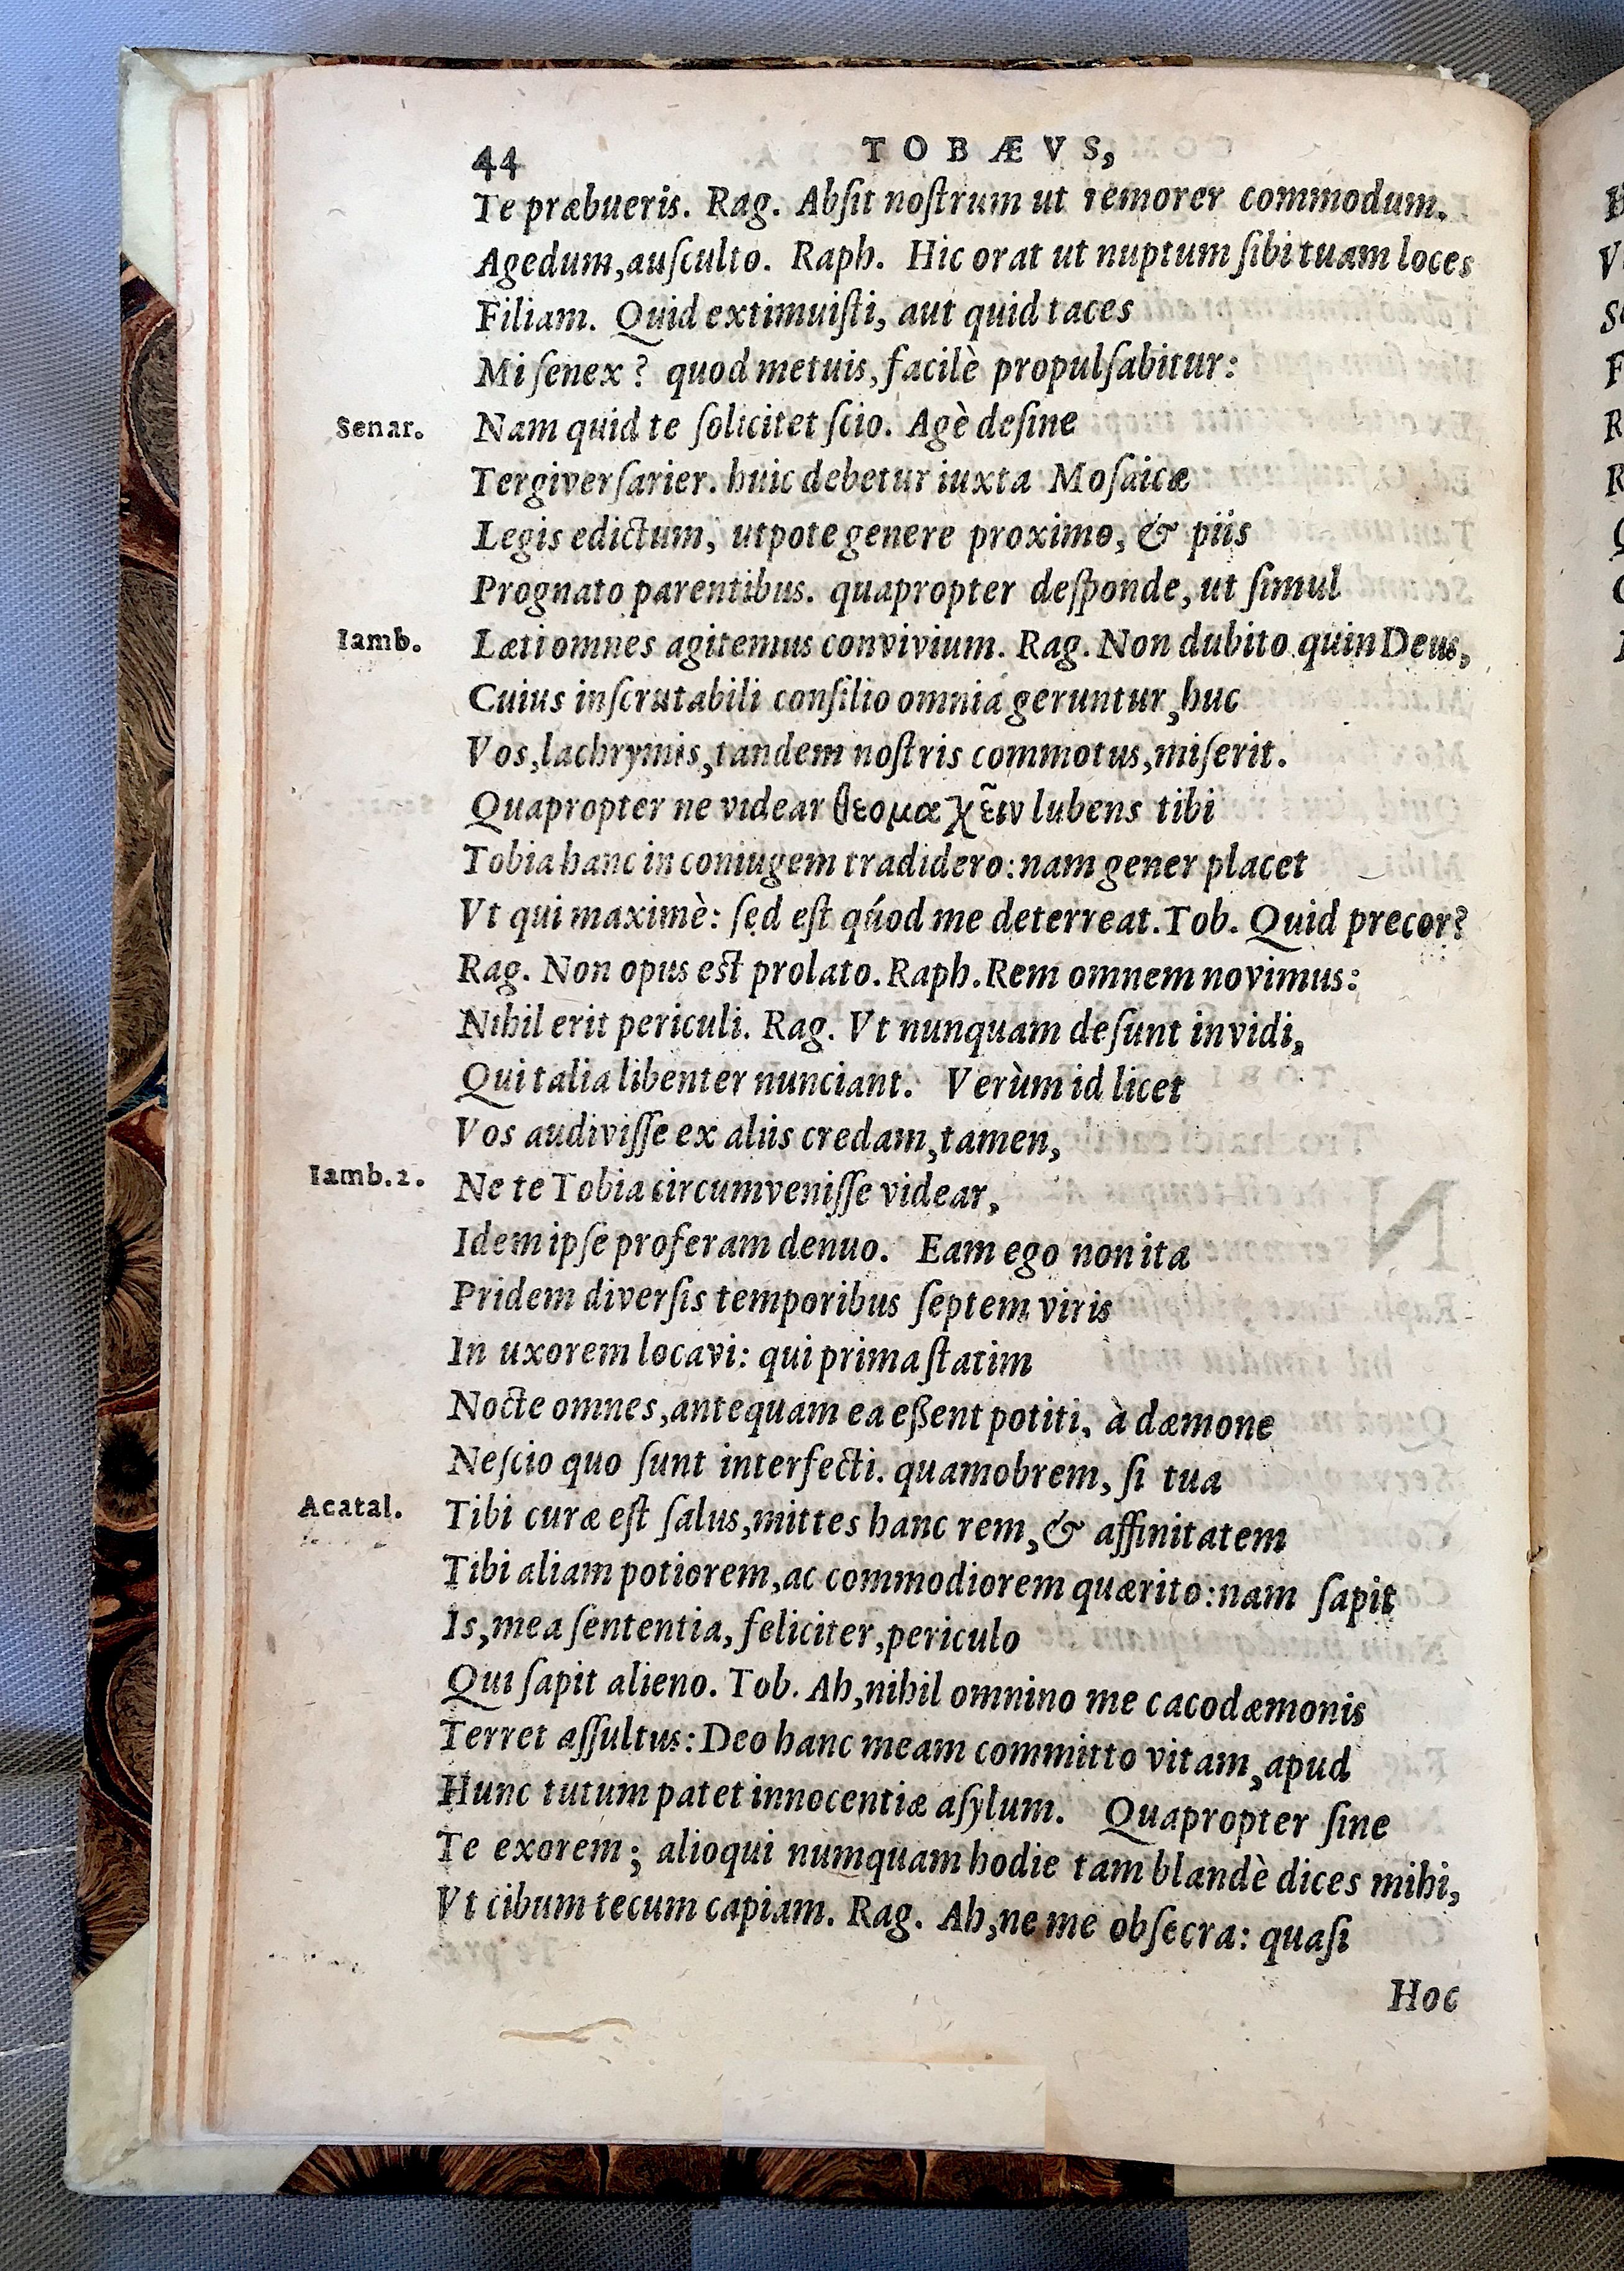 44 TOBÆVS,
Te præbueris. Rag. Abſit noſtrum ut remorer commodum.
Agedum,auſculto. Raph. Hic orat ut nuptum ſibi tuam loces
Filiam. Quid extimuiſti, aut quid taces
Mi ſenex? quod metuis, facilè propulſabitur:
Senar. Nam quid te ſolicitet ſcio. Agè deſine
Tergiverſarier. huic debetur iuxta Moſaicæ
Legis edictum, utpote genere proximo, & piis
Prognato parentibus. quapropter deſponde, ut ſimul
Iamb. Læti omnes agitemus convivium. Rag. Non dubito quin Deus,
Cuius inſcrutabili conſilio omnia geruntur,huc
Vos,lachrymis,tandem noſtris commotus,miſerit.
Quapropter ne videar θεομαχεῖν lubens tibi
Tobia hanc in coniugem tradidero: nam gener placet
Vt qui maximè: ſed eſt qúod me deterreat. Tob. Quid precor?
Rag. Non opus eſt prolato. Raph. Rem omnem novimus:
Nihil erit periculi. Rag. Vt nunquam deſunt invidi,
Qui talia libenter nunciant. Verùm id licet
Vos audiviſſe ex aliis credam,tamen,
Iamb.2. Ne te Tobia circumveniſſe videar,
Idem ipſe proferam denuo. Eam ego non ita
Pridem diverſis temporibus ſeptem viris
In uxorem locavi: qui prima ſtatim
Nocte omnes,antequam ea eßent potiti, à dæmone
Neſcio quo ſunt interfecti. quamobrem, ſi tua
Acatal. Tibi curæ eſt ſalus,mittes hanc rem,& affinitatem
Tibi aliam potiorem,ac commodiorem quærito: nam ſapit
Is,mea ſententia, feliciter,periculo
Qui ſapit alieno. Tob. Ah,nihil omnino me cacodæmonis
Terret aſſultus: Deo hanc meam committo vitam,apud
Hunc tutum patet innocentiæ aſylum. Quapropter ſine
Te exorem; alioqui numquam hodie tam blandè dices mihi,
Vt cibum tecum capiam. Rag. Ah,ne me obſecra: quaſi
Hoc